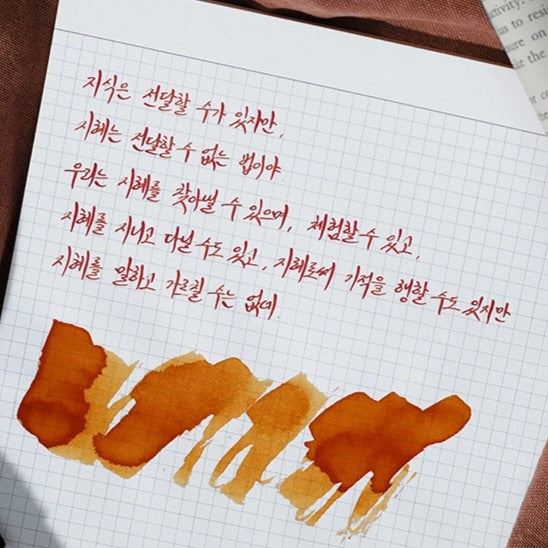 지식은 전달할 수가 있지만,
지혜는 전달할 수 없는 법이야.
우리는 지혜를 찾아낼 수 있으며, 체험할 수 있고,
지혜를 지니고 다닐 수도 있고, 지혜로써 기적을 행할 수도 있지만
지혜를 말하고 가르칠 수는 없네.
to resi
ure on
the